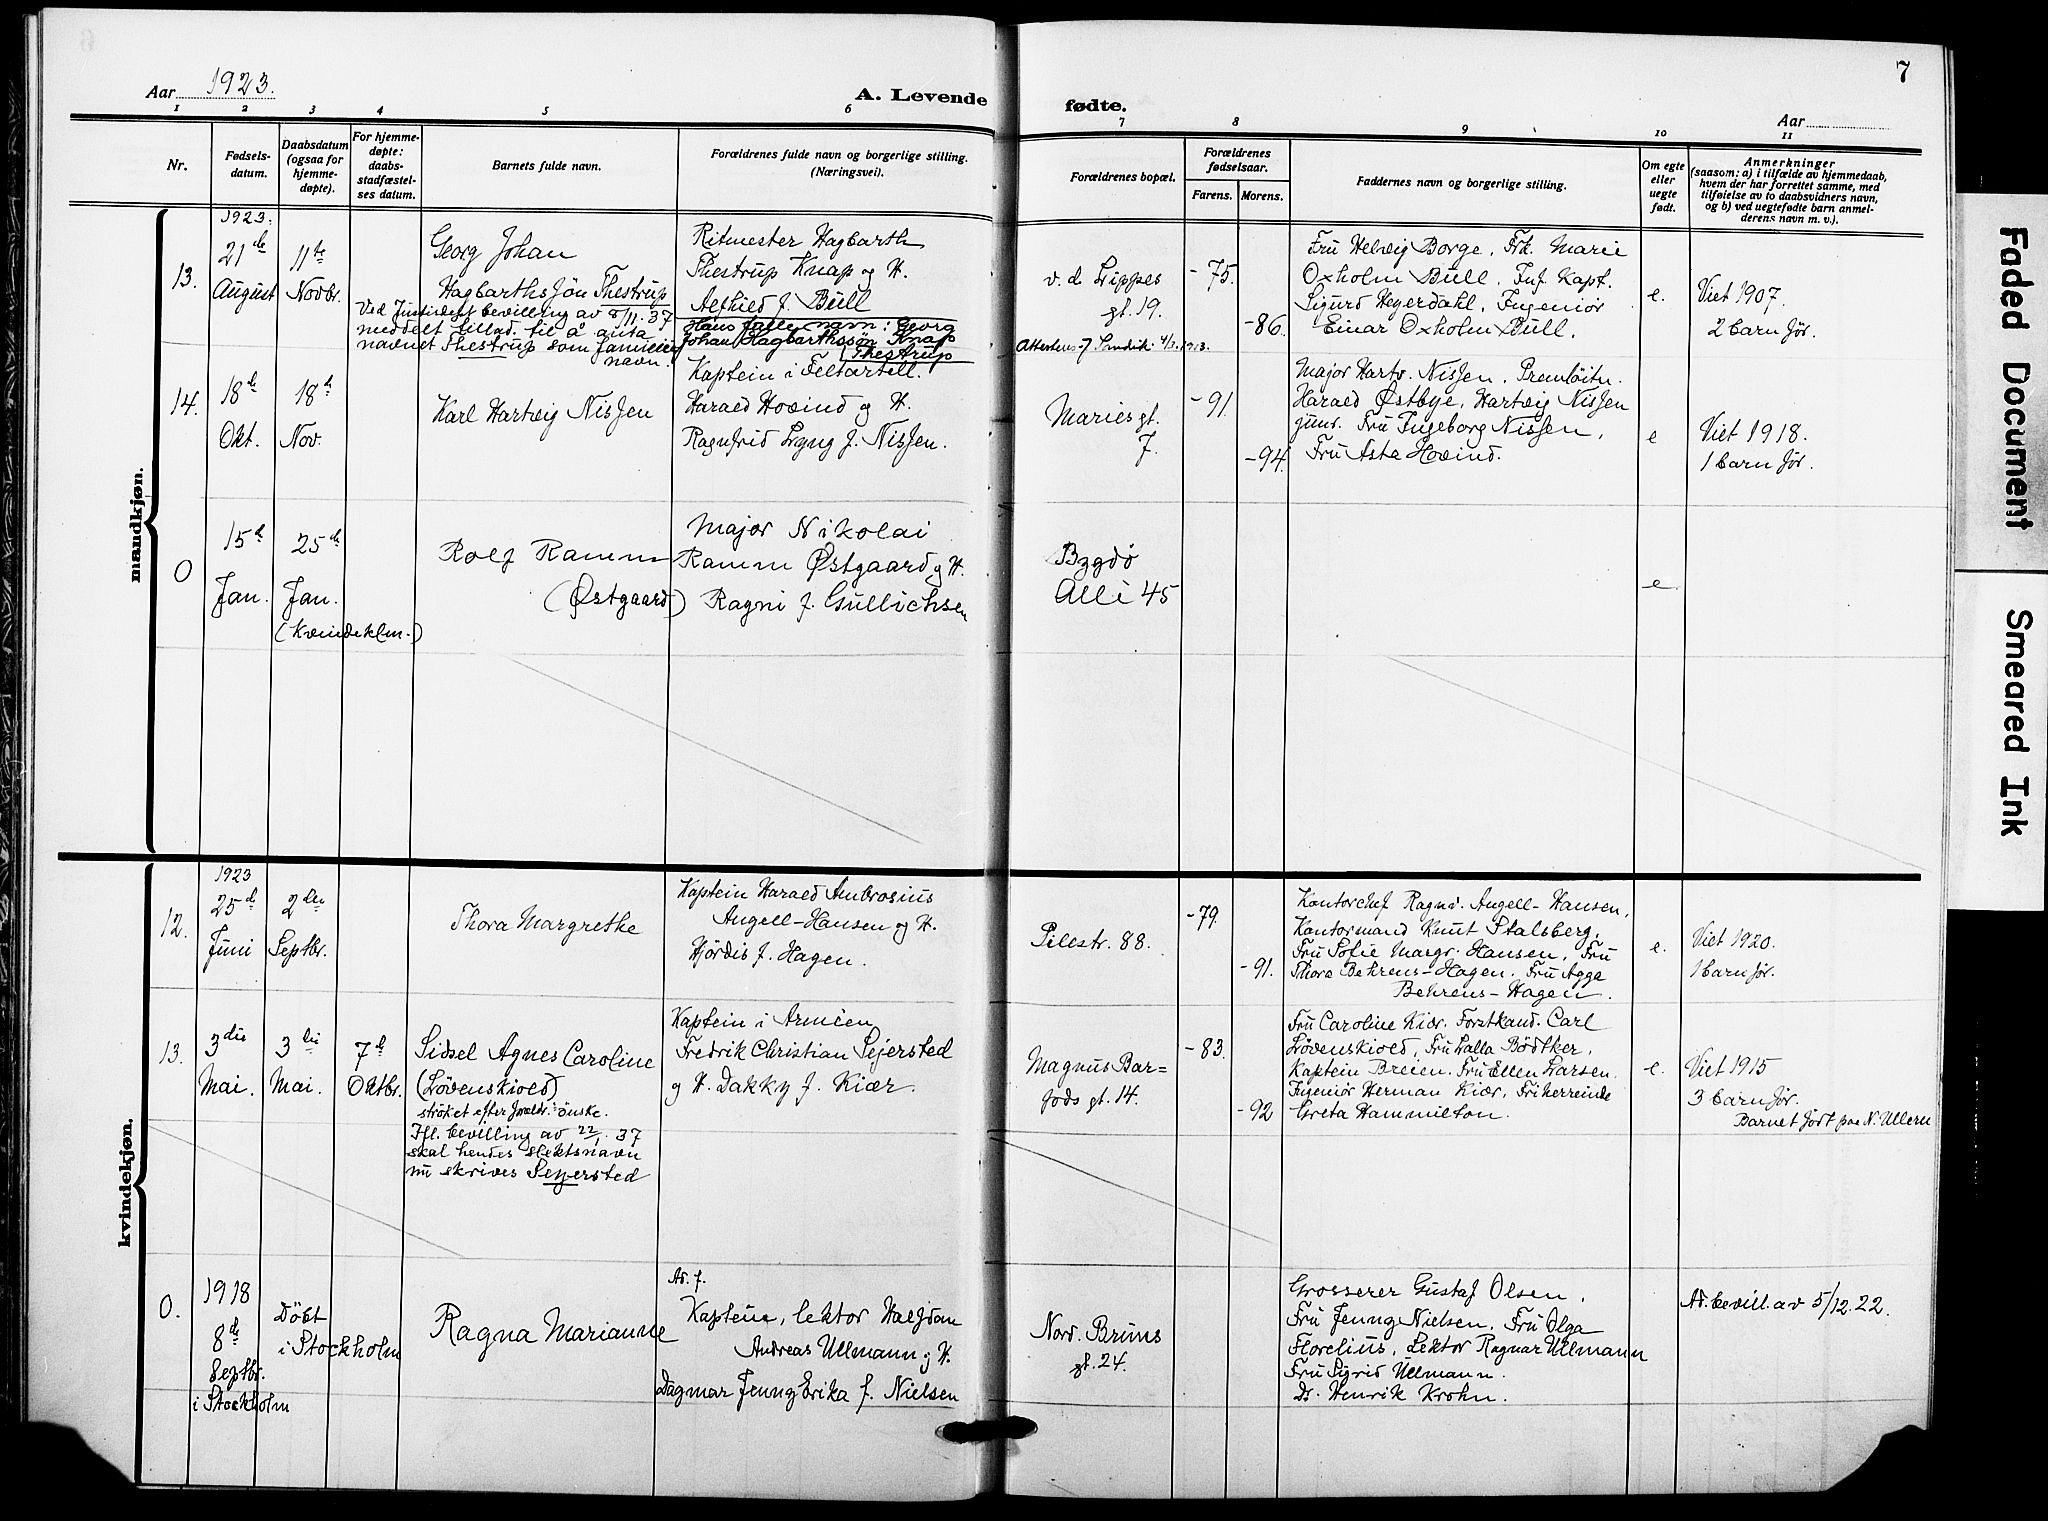 7
Aar 1923.
A. Levende
fødte.
Aar
1 2 3 4 5 6 7 8 9 10 11
Nr.
Fødsels-
datum.
Daabsdatum
(ogsaa for
hjemme-
døpte).
For hjemme-
døpte:
daabs-
stadfæstel-
ses datum.
Barnets fulde navn.
Forældrenes fulde navn og borgerlige stilling.
(Næringsvei).
Forældrenes bopæl.
Forældrenes
fødselsaar.
Farens. Morens.
Faddernes navn og borgerlige stilling.
Om egte
eller
uegte
født.
Anmerkninger
(saasom: a) i tilfælde av hjemmedaab,
hvem der har forrettet samme, med
tilføielse av to daabsvidners navn,
og b) ved uegtefødte barn anmel-
derens navn m. v.).
mandkjøn.
13.
1923:
21de
August
11te
Novbr.
Georg Johan
Hagbarthsjøn Thestrup
Ved Justisdept bevilling av 8/11. 37
meddelt tillad. til å anta
navnet Thestrup som familie
navn.
Ritmester Hagbarth
Thestrup Knap og H.
Alfhild f. Bull
Hans fulle navn: Georg
Johan Hagbarthssøn Knap
Thestrup
v. d. Lippes
gt. 19.
-75.
-86.
Fru Helvig Borge, Frk. Marie
Oxholm Bull, Inf. Kapt.
Sigurd Heyerdahl, Ingeniør
Einar Oxholm Bull.
e.
Viet 1907.
2 barn før.
14.
18de
Okt.
18de
Nov.
Karl Hartvig Nissen
Kaptein i Feltartell.
Harald Hovind og H.
Ragnfrid Lyng f. Nissen.
Maries gt.
7.
-91.
-94.
Major Hartv. Nissen, Premløitn.
Harald Østbye, Hartvig Nissen
junr. Fru Ingeborg Nissen,
Fru Asta Hovind.
e
Viet 1918.
1 barn før.
0
15de
Jan.
25de
Jan.
(Kvindeklin.)
Rolf Ramm
(Østgaard)
Major Nikolai
Ramm Østgaard og H.
Ragni f. Gullichsen
Bygdö
Alle 45
e
kvindekjøn.
12.
1923
25de
Juni
2den
Septbr.
Thora Margrethe
Kaptein Harald Ambrosius
Angell-Hansen og H.
Hjördis f. Hagen.
Pilestr. 88.
-79.
-91.
Kontorchef Ragnv. Angell-Hansen,
Kontormand Knut Stalsberg,
Fru Sofie Margr. Hansen, Fru
Thora Behrens-Hagen. Fru Agga
Behrens-Hagen.
e.
Viet 1920.
1 barn før.
13.
3die
Mai.
3die
Mai.
7de
Oktbr.
Sidsel Agnes Caroline
(Lövenskiold)
ströket efter foreldr. önske.
Ifl. bevilling av 22/1. 37
skal hendes slektsnavn
nu skrives Sejersted
Kaptein i Armeen
Fredrik Christian Sejersted
og H. Dakky f. Kiær.
Magnus Bar=
fods gt. 14.
-83.
-92
Fru Caroline Kiær. Forstkand. Carl
Lövenskiold, Fru Lalla Bödtker,
Kaptein Breien. Fru Ellen Larsen.
Ingeniør Herman Kiær, Friherreinde
Greta Hammilton.
e.
Viet 1915
3 barn før.
Barnet født paa N. Ullern
0.
1918
8de
Septbr.
i Stockholm
Döbt
i Stockholm
Ragna Marianne
Ad. f.
Kaptein, lektor Halfdan
Andreas Ullmann og H.
Dagmar Jenny Erika f. Nielsen
Nord. Bruns
gt. 24.
Grosserer Gustaf Olsen,
Fru Jenny Nielsen, Fru Olga
Florelius, Lektor Ragnar Ullmann
Fru Sigrid Ullmann.
Dr. Henrik Krohn.
Ad. bevill. av 5/12. 22.
Faded Document
Smeared Ink